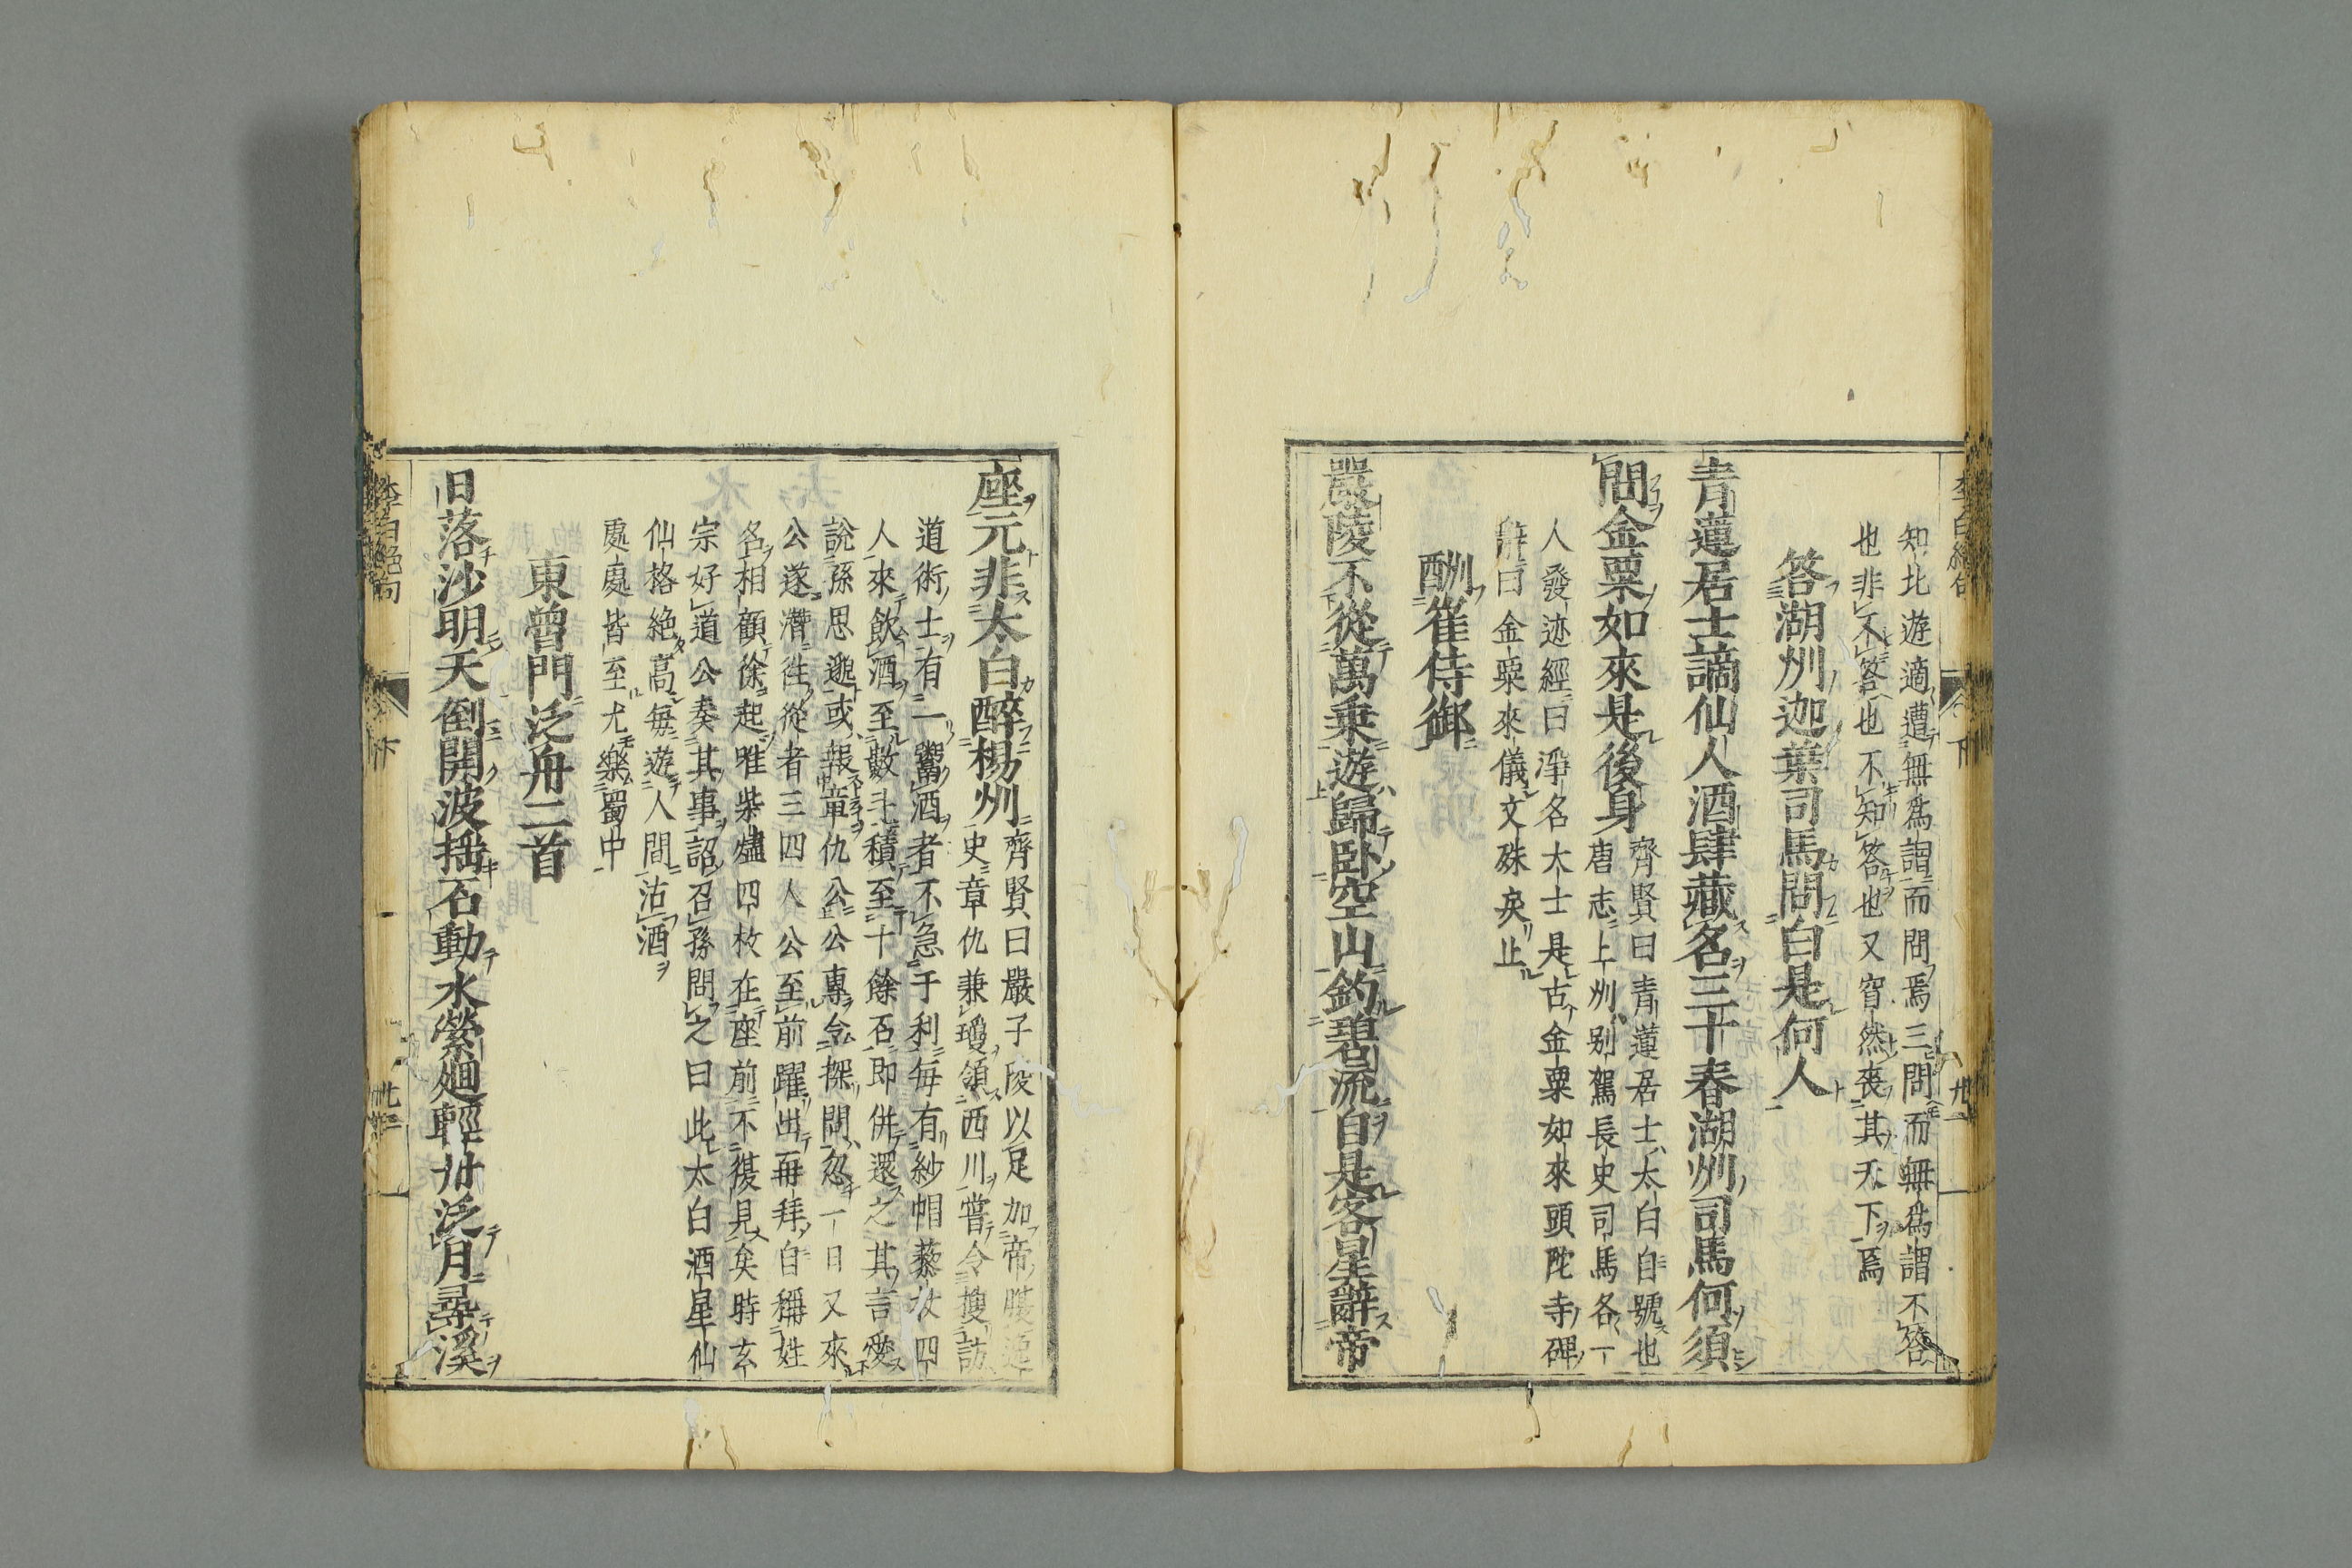 知北遊適遭無爲謂而問焉三問而無爲謂不答
也非不答也不知答也又窅然喪其天下焉
答湖州迦葉司馬問白是何人
青蓮居士謫仙人酒肆藏名三十春湖州司馬何須
問金粟如來是後身
齊賢曰青蓮居士太白自號也
唐志上州別駕長史司馬各一
人發迹經曰淨名大士是古金粟如來頭陀寺碑
曰金粟來儀文殊矣止
酬崔侍御
嚴陵不從萬乗遊歸卧空山釣碧流自是客星辭帝
李白絶句
下
廿二
座元非太白醉楊州
齊賢曰嚴子陵以足加帝腹
史章仇兼瓊領西川嘗令搜訪
道術士有一鬻酒者不急于利毎有紗帽藜杖四
人來飲酒至數斗積至十餘石即併還之其言愛
說孫思邈或報章仇公公專令探問忽一日又來
公遂濳徃從者三四人公至前躍出再拜自稱姓
名相顧徐起唯柴燼四枚在座前不復見矣時玄
宗好道公奏其事詔召孫問之曰此太白酒星仙
仙格絶高毎遊人間沽酒
處處皆至尤樂蜀中
東曾門泛舟二首
日落沙明天倒開波揺石動水縈廻輕舟泛月尋溪
李白絶句
下
廿三